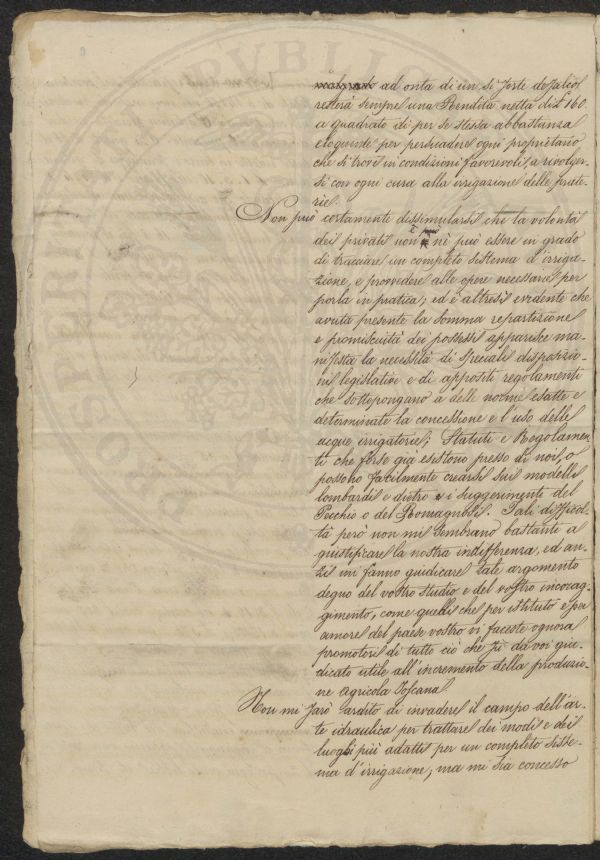 malgrado ad onta di un sì forte defalco
resterà sempre una Rendita netta di £ 160.
a quadrato di per se stessa abbastanza
eloquente per persuadere ogni proprietario
che si trovi in condizioni favorevoli a rivolger-
si con ogni cura alla irrigazione delle prate-
rie.
Non può certamente dissimularsi che la volontà
dei privati non è nè può essere in grado
di tracciare un completo sistema d'irriga-
zione, e provvedere alle opere necessarie per
porla in pratica; ed è altresì evidente che
avuta presente la somma repartizione
e promiscuità dei possessi apparisce ma-
nifesta la necessità di speciali disposizio-
ni legislative e di appositi regolamenti
che sottopongano a delle norme esatte e
determinate la concessione e l'uso delle
acque irrigatorie; Statuti e Regolamen-
ti che forse già esistono presso di noi, o
possono facilmente crearsi sui modelli
lombardi e dietro i suggerimenti del
Pecchio o del Romagnosi. Tale difficol-
tà però non mi sembrano bastanti a
giustificare la nostra indifferenza, ed an-
zi mi fanno giudicare tale argomento
degno del vostro studio e del vostro incorag-
gimento, come quelli che per istituto e per
amore del paese vostro vi faceste ognora
promotori di tutto ciò che fu da voi giu-
dicato utile all'incremento della produzio-
ne agricola Toscana.
Non mi farò ardito di invadere il campo dell'ar-
te idraulica per trattare dei modi e dei
luoghi più adatti per un completo siste-
ma d'irrigazione, ma mi sia concesso